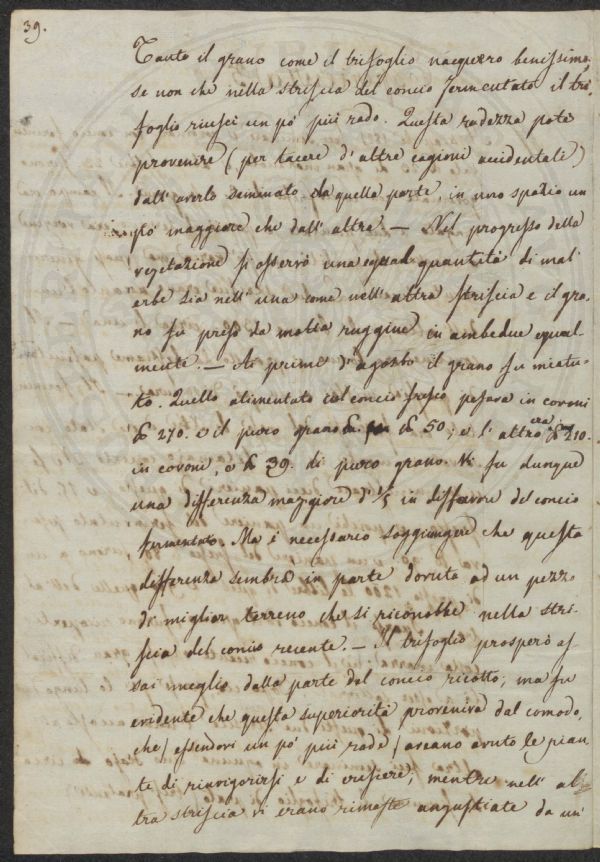 39.
Tanto il grano come il trifoglio nacquero benissimo,
se non che nella striscia del concio fermentato il tri
foglio riuscì un pò più rado. Questa radezza potè
provenire (per tacere d'altre cagioni accidentali)
dall'averlo seminato da quella parte, in uno spazio un
pò maggiore che dall'altra. — Nel progresso della
vegetazione si osservò una equal quantità di mal'
erbe sia nell'una come nell'altra striscia e il gra-
no fu preso da molta ruggine in ambedue equal-
mente. — Ai primi d'agosto il grano fu mietu-
to. Quello alimentato col concio fresco pesava in covoni
℔ 270. e il puro grano ℔ 50; e l'altro era ℔ 210.
in covoni, e ℔ 39. di puro grano. Vi fu dunque
una differenza maggiore d'1/5 in disfavore del concio
fermentato. Ma è necessario soggiungere che questa
differenza sembra in parte dovuta ad un pezzo
di miglior terreno che si riconobbe nella stri-
scia del concio recente. — Il trifoglio prosperò as
sai meglio dalla parte del concio ricotto; ma fu
evidente che questa superiorità proveniva dal comodo,
che (essendovi un pò più rade) aveano avuto le pian
te di rinvigorirsi e di crescere; mentre nell'al
tra striscia vi erano rimaste angustiate da un'